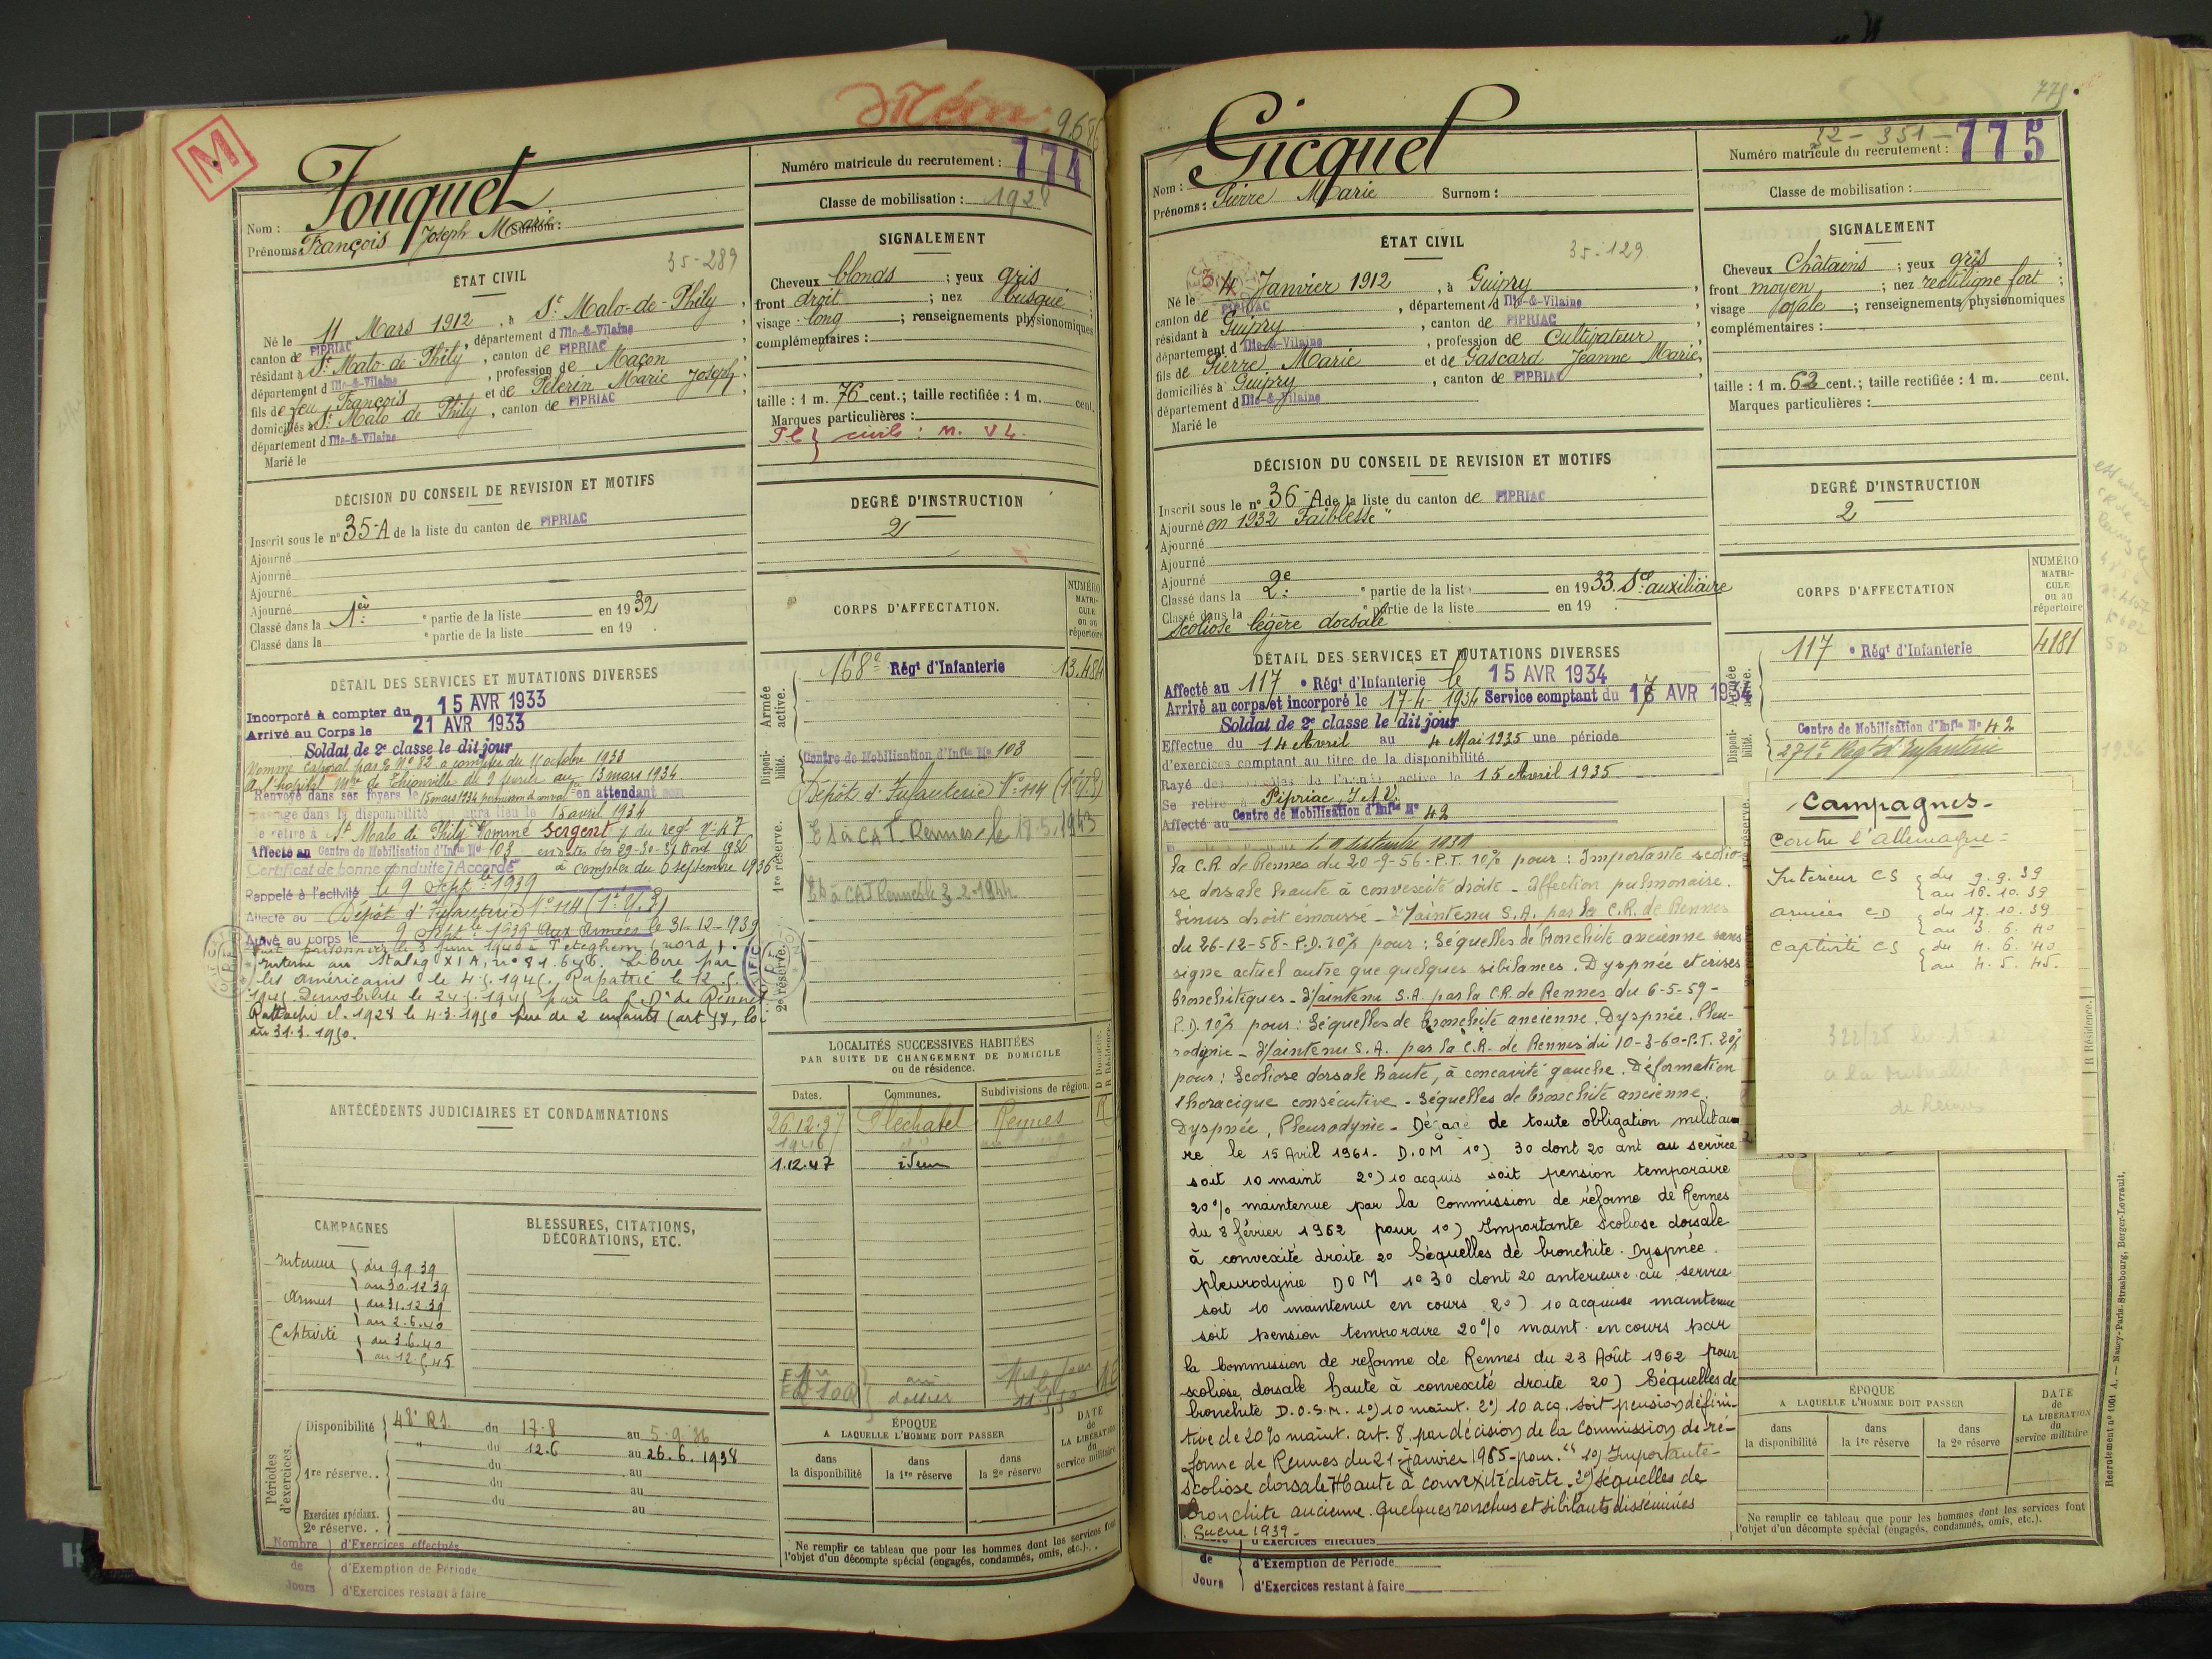 M
Fouquet
Nom :
Prénoms : François Joseph Marie
Surnom :
35-289
ÉTAT CIVIL
Né le 11 Mars 1912, à St Malo-de-Phily,
canton de PIPRIAC, département d Ille-&-Vilaine,
résidant à St Malo-de-Phily, canton de PIPRIAC,
département d Ille-&-Vilaine, profession de Maçon
fils de feu François et de Pélerin Marie Joseph,
domiciliés à St Malo de Phily, canton de PIPRIAC,
département d Ille-&-Vilaine
Marié le
DÉCISION DU CONSEIL DE REVISION ET MOTIFS
Inscrit sous le n° 35-A de la liste du canton de PIPRIAC
Ajourné
Ajourné
Ajourné
Ajourné
Classé dans la 1ère partie de la liste en 1932
Classé dans la e partie de la liste en 19 .
DÉTAIL DES SERVICES ET MUTATIONS DIVERSES
Incorporé à compter du 15 AVR 1933
Arrivé au Corps le 21 AVR 1933
Soldat de 2e classe le dit jour
Nommé Caporal par § N° 82 à compter du 11 octobre 1933
A l'hôpital Mre de Thionville du 9 février au 13 mars 1934
Renvoyé dans ses foyers le 15 mars 1934 en attendant son
passage dans la disponibilité aura lieu le 15 avril 1934
Se retire à St Malo de Phily Nommé Sergent
Affecté au Centre de Mobilisation d'Inf^ie N° 103
Certificat de bonne conduite Accordé à compter du 6 septembre 1936
Rappelé à l'activité le 9 Septbre 1939
Affecté au Dépôt d'Infanterie N° 114
Arrivé au corps le 9 Septbre 1939 Aux Armées le 31-12-1939
Fait prisonnier le 3 Juin 1940 à Teteghem (Nord).
Interné au Stalag XI A, n° 81.646. Libéré par
les Américains le 4.5.1945. Rapatrié le 12.5.
1945 Démobilisé le 24.5.1945 par le C.D. de Rennes
Rattaché cl. 1928 le 4.3.1950 Père de 2 enfants (art 58, loi
du 31.3.1950.
ANTÉCÉDENTS JUDICIAIRES ET CONDAMNATIONS
CAMPAGNES
Intérieur du 9.9.39
au 30.12.39
Armées du 31.12.39
au 2.6.40
Captivité du 3.6.40
au 12.5.45
BLESSURES, CITATIONS,
DÉCORATIONS, ETC.
Périodes d'exercices.
Disponibilité 48e R.I. du 17-8 au 5-9-36
" du 12.6 au 26.6.1938
1re réserve. . du au
du au
du au
Exercices spéciaux.
2e réserve. .
Nombre de Jours
d'Exercices effectués
d'Exemption de Période
d'Exercices restant à faire
968
Numéro matricule du recrutement : 774
Classe de mobilisation : 1928
SIGNALEMENT
Cheveux blonds ; yeux gris ;
front droit ; nez busqué ;
visage long ; renseignements physionomiques
complémentaires :
taille : 1 m. 76 cent.; taille rectifiée : 1 m. cent.
Marques particulières :
civils : M. VL.
DEGRÉ D'INSTRUCTION
2
CORPS D'AFFECTATION.
NUMÉRO MATRICULE ou au répertoire
Armée active.
168e Régt d'Infanterie 13.484
Disponibilité.
Centre de Mobilisation d'Inf^ie N° 103
Dépôt d'Infanterie N° 114
1re réserve.
CAT. Rennes le 18.5.1943
CAT Rennes le 3-2-1944
2e réserve.
LOCALITÉS SUCCESSIVES HABITÉES
PAR SUITE DE CHANGEMENT DE DOMICILE
ou de résidence.
D Domicile. R Résidence.
Dates. Communes. Subdivisions de région.
26.12.37 Plechatel Rennes R
1946
1.12.47 idem
dossier
ÉPOQUE
A LAQUELLE L'HOMME DOIT PASSER
DATE de LA LIBÉRATION du service militaire
dans la disponibilité dans la 1re réserve dans la 2e réserve
Ne remplir ce tableau que pour les hommes dont les services font
l'objet d'un décompte spécial (engagés, condamnés, omis, etc.).
775
Gicquel
Nom :
Prénoms : Pierre Marie Surnom :
35-129
ÉTAT CIVIL
Né le 4 Janvier 1912, à Guipry,
canton de PIPRIAC, département d Ille-&-Vilaine
résidant à Guipry, canton de PIPRIAC
département d Ille-&-Vilaine, profession de Cultivateur
fils de Pierre Marie et de Gascard Jeanne Marie,
domiciliés à Guipry, canton de PIPRIAC
département d Ille-&-Vilaine
Marié le
DÉCISION DU CONSEIL DE REVISION ET MOTIFS
Inscrit sous le n° 36-A de la liste du canton de PIPRIAC
Ajourné en 1932 "Faiblesse"
Ajourné
Ajourné
Ajourné
Classé dans la 2e partie de la liste en 1933. Sce auxiliaire
Classé dans la e partie de la liste en 19
scoliose légère dorsale
DÉTAIL DES SERVICES ET MUTATIONS DIVERSES
Affecté au 117 e Régt d'Infanterie le 15 AVR 1934
Arrivé au corps et incorporé le 17-4-1934 Service comptant du 17 AVR 1934
Soldat de 2e classe le dit jour
Effectue du 14 Avril au 4 Mai 1935 une période
d'exercices comptant au titre de la disponibilité.
Rayé des contrôles de l'armée active le 15 Avril 1935
Se retire à Pipriac, I.&V.
Affecté au Centre de Mobilisation d'Inf^ie N° 42
la C.R. de Rennes du 20-9-56-P.T. 10% pour : Importante scolio-
se dorsale haute à convexité droite - Affection pulmonaire.
Sinus droit émoussé - Maintenu S.A. par la C.R. de Rennes
du 26-12-58-P.D. 10% pour : Séquelles de bronchite ancienne sans
signe actuel autre que quelques sibilances. Dyspnée et crises
bronchitiques - Maintenu S.A. par la C.R. de Rennes du 6-5-59-
P.D. 10% pour : Séquelles de bronchite ancienne. Dyspnée. Pleu-
rodynie - Maintenu S.A. par la C.R. de Rennes du 10-3-60-P.T. 20%
pour : Scoliose dorsale haute, à concavité gauche. Déformation
thoracique consécutive - Séquelles de bronchite ancienne.
Dyspnée, Pleurodynie - Dégagé de toute obligation militai
re le 15 Avril 1961. D.O.M 1°) 30 dont 20 ant au service
soit 10 maint 2°) 10 acquis soit pension temporaire
20% maintenue par la Commission de réforme de Rennes
du 8 février 1962 pour 1°) Importante scoliose dorsale
à convexité droite 2° Séquelles de bronchite. Dyspnée.
pleurodynie DOM 1° 30 dont 20 anterieure au service
soit 10 maintenue en cours 2°) 10 acquise maintenue
soit pension temporaire 20% maint en cours par
la Commission de réforme de Rennes du 23 Août 1962 pour
scoliose dorsale haute à convexité droite 2°) Séquelles de
bronchite D.O.S.M. 1°) 10 maint. 2°) 10 acq. soit pension défini-
tive de 20% maint. art. 8. par décision de la Commission de ré-
forme de Rennes du 21 janvier 1965-pour " 1°) Importante-
scoliose dorsale Haute à convexité droite. 2°) séquelles de
Bronchite ancienne. Quelques ronchus et sibilants disséminés
Guerre 1939-
d'Exercices effectués
de Jours
d'Exemption de Période
d'Exercices restant à faire
32-351-
Numéro matricule du recrutement : 775
Classe de mobilisation :
SIGNALEMENT
Cheveux Châtains ; yeux gris ;
front moyen ; nez rectiligne fort ;
visage ovale ; renseignements physionomiques
complémentaires :
taille : 1 m. 62 cent.; taille rectifiée : 1 m. cent.
Marques particulières :
DEGRÉ D'INSTRUCTION
2
CORPS D'AFFECTATION
NUMÉRO MATRICULE ou au répertoire
117 e Régt d'Infanterie 4181
Disponibilité.
Centre de Mobilisation d'Inf^ie N° 42
271e Reg^t d'Infanterie
Campagnes-
Contre l'Allemagne=
Intérieur CS du 9.9.39
au 16.10.39
Armées CD du 17.10.39
au 3.6.40
Captivité CS du 4.6.40
au 4.5.45.
R Résidence.
ÉPOQUE
A LAQUELLE L'HOMME DOIT PASSER
DATE de LA LIBÉRATION du service militaire
dans la disponibilité dans la 1re réserve dans la 2e réserve
Ne remplir ce tableau que pour les hommes dont les services font
l'objet d'un décompte spécial (engagés, condamnés, omis, etc.).
Recrutement n° 1001 A. — Nancy-Paris-Strasbourg, Berger-Levrault.